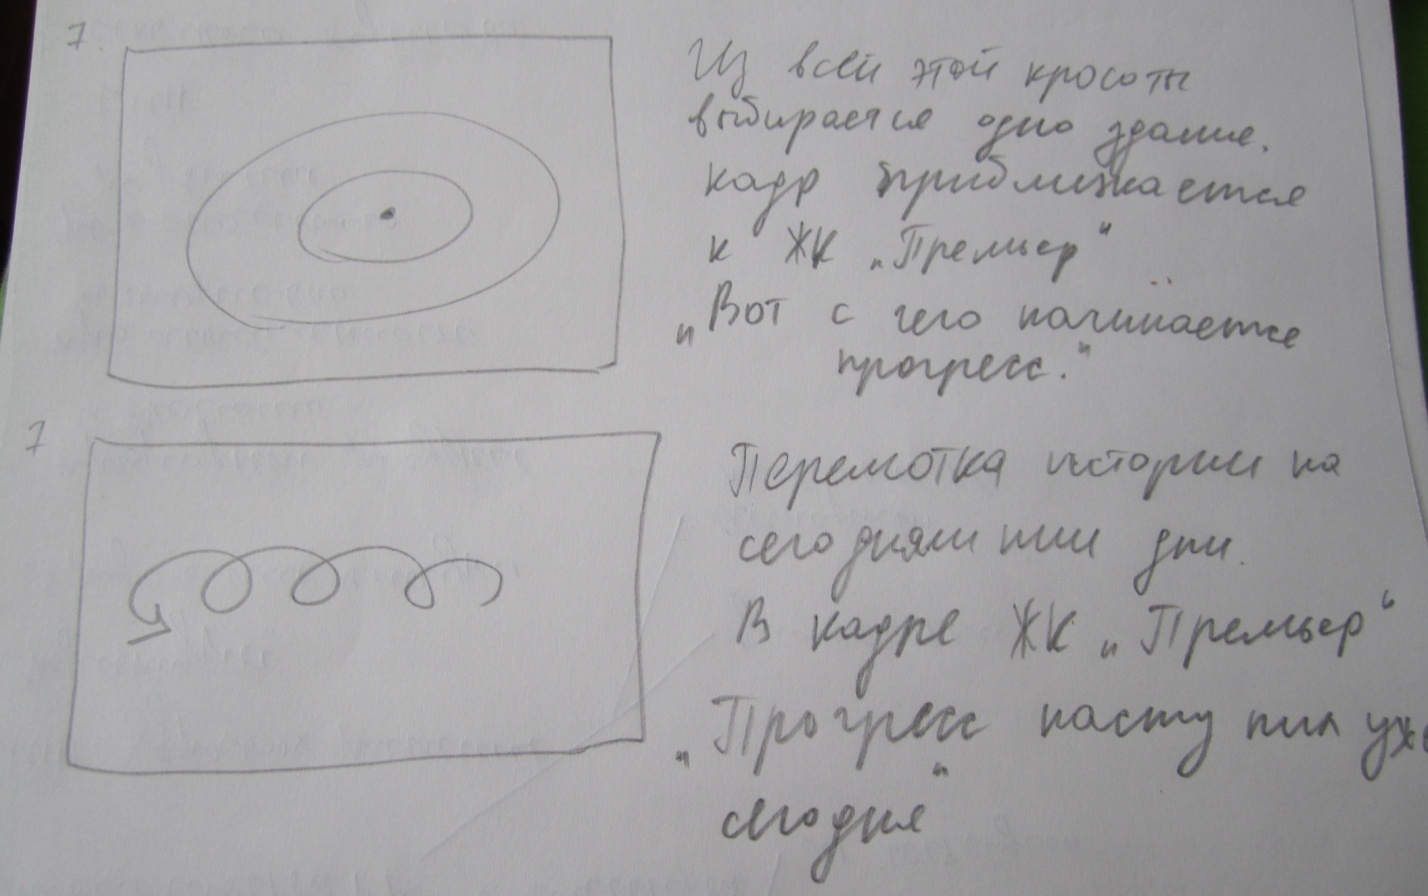 7.
Из всей этой красоты
выбирается одно здание.
кадр приближается
к ЖК „Премьер“
„Вот с чего начинается
прогресс.“
7
Перемотка истории на
сегодняшнии дни.
В кадре ЖК „Премьер“
„Прогресс наступил уже
сегодня“